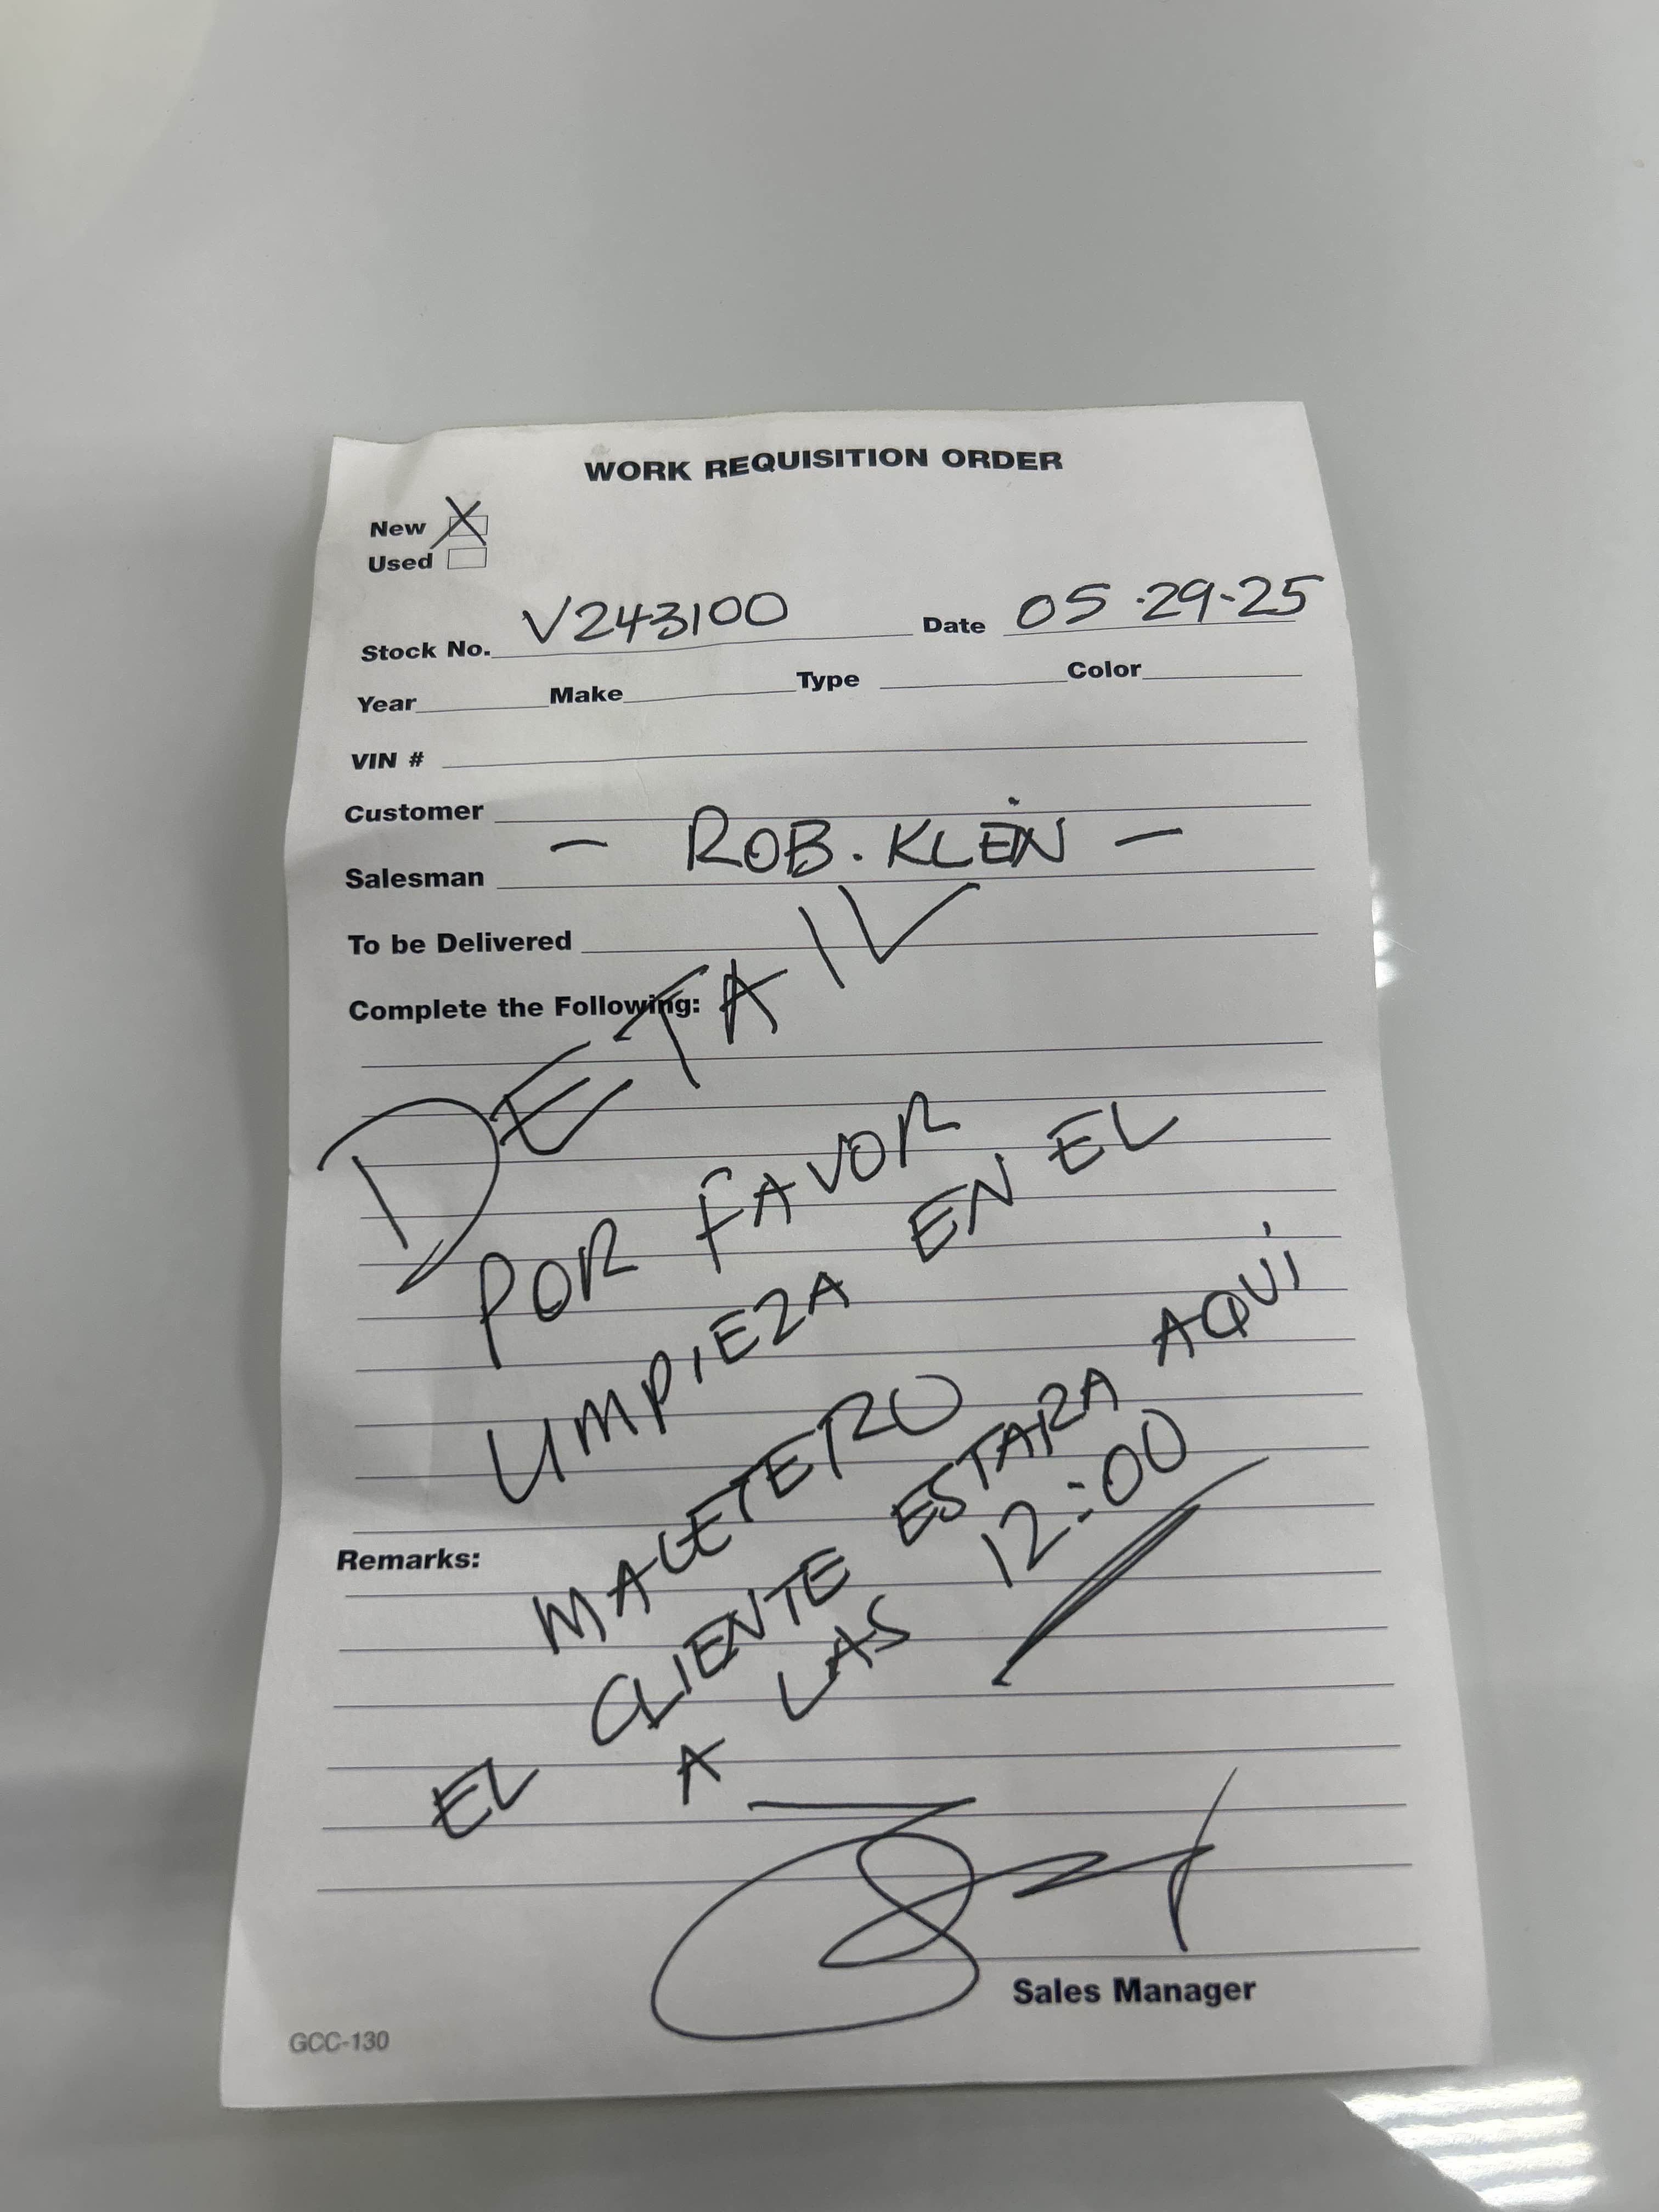 WORK REQUISITION ORDER
New X
Used
Stock No. V243100 Date 05-29-25
Year Make Type Color
VIN #
Customer
Salesman - ROB. KLEIN -
To be Delivered
Complete the Following:
DETAIL
POR FAVOR
LIMPIEZA EN EL
MALETERO
Remarks:
EL CLIENTE ESTARA AQUI
A LAS 12:00
Sales Manager
GCC-130